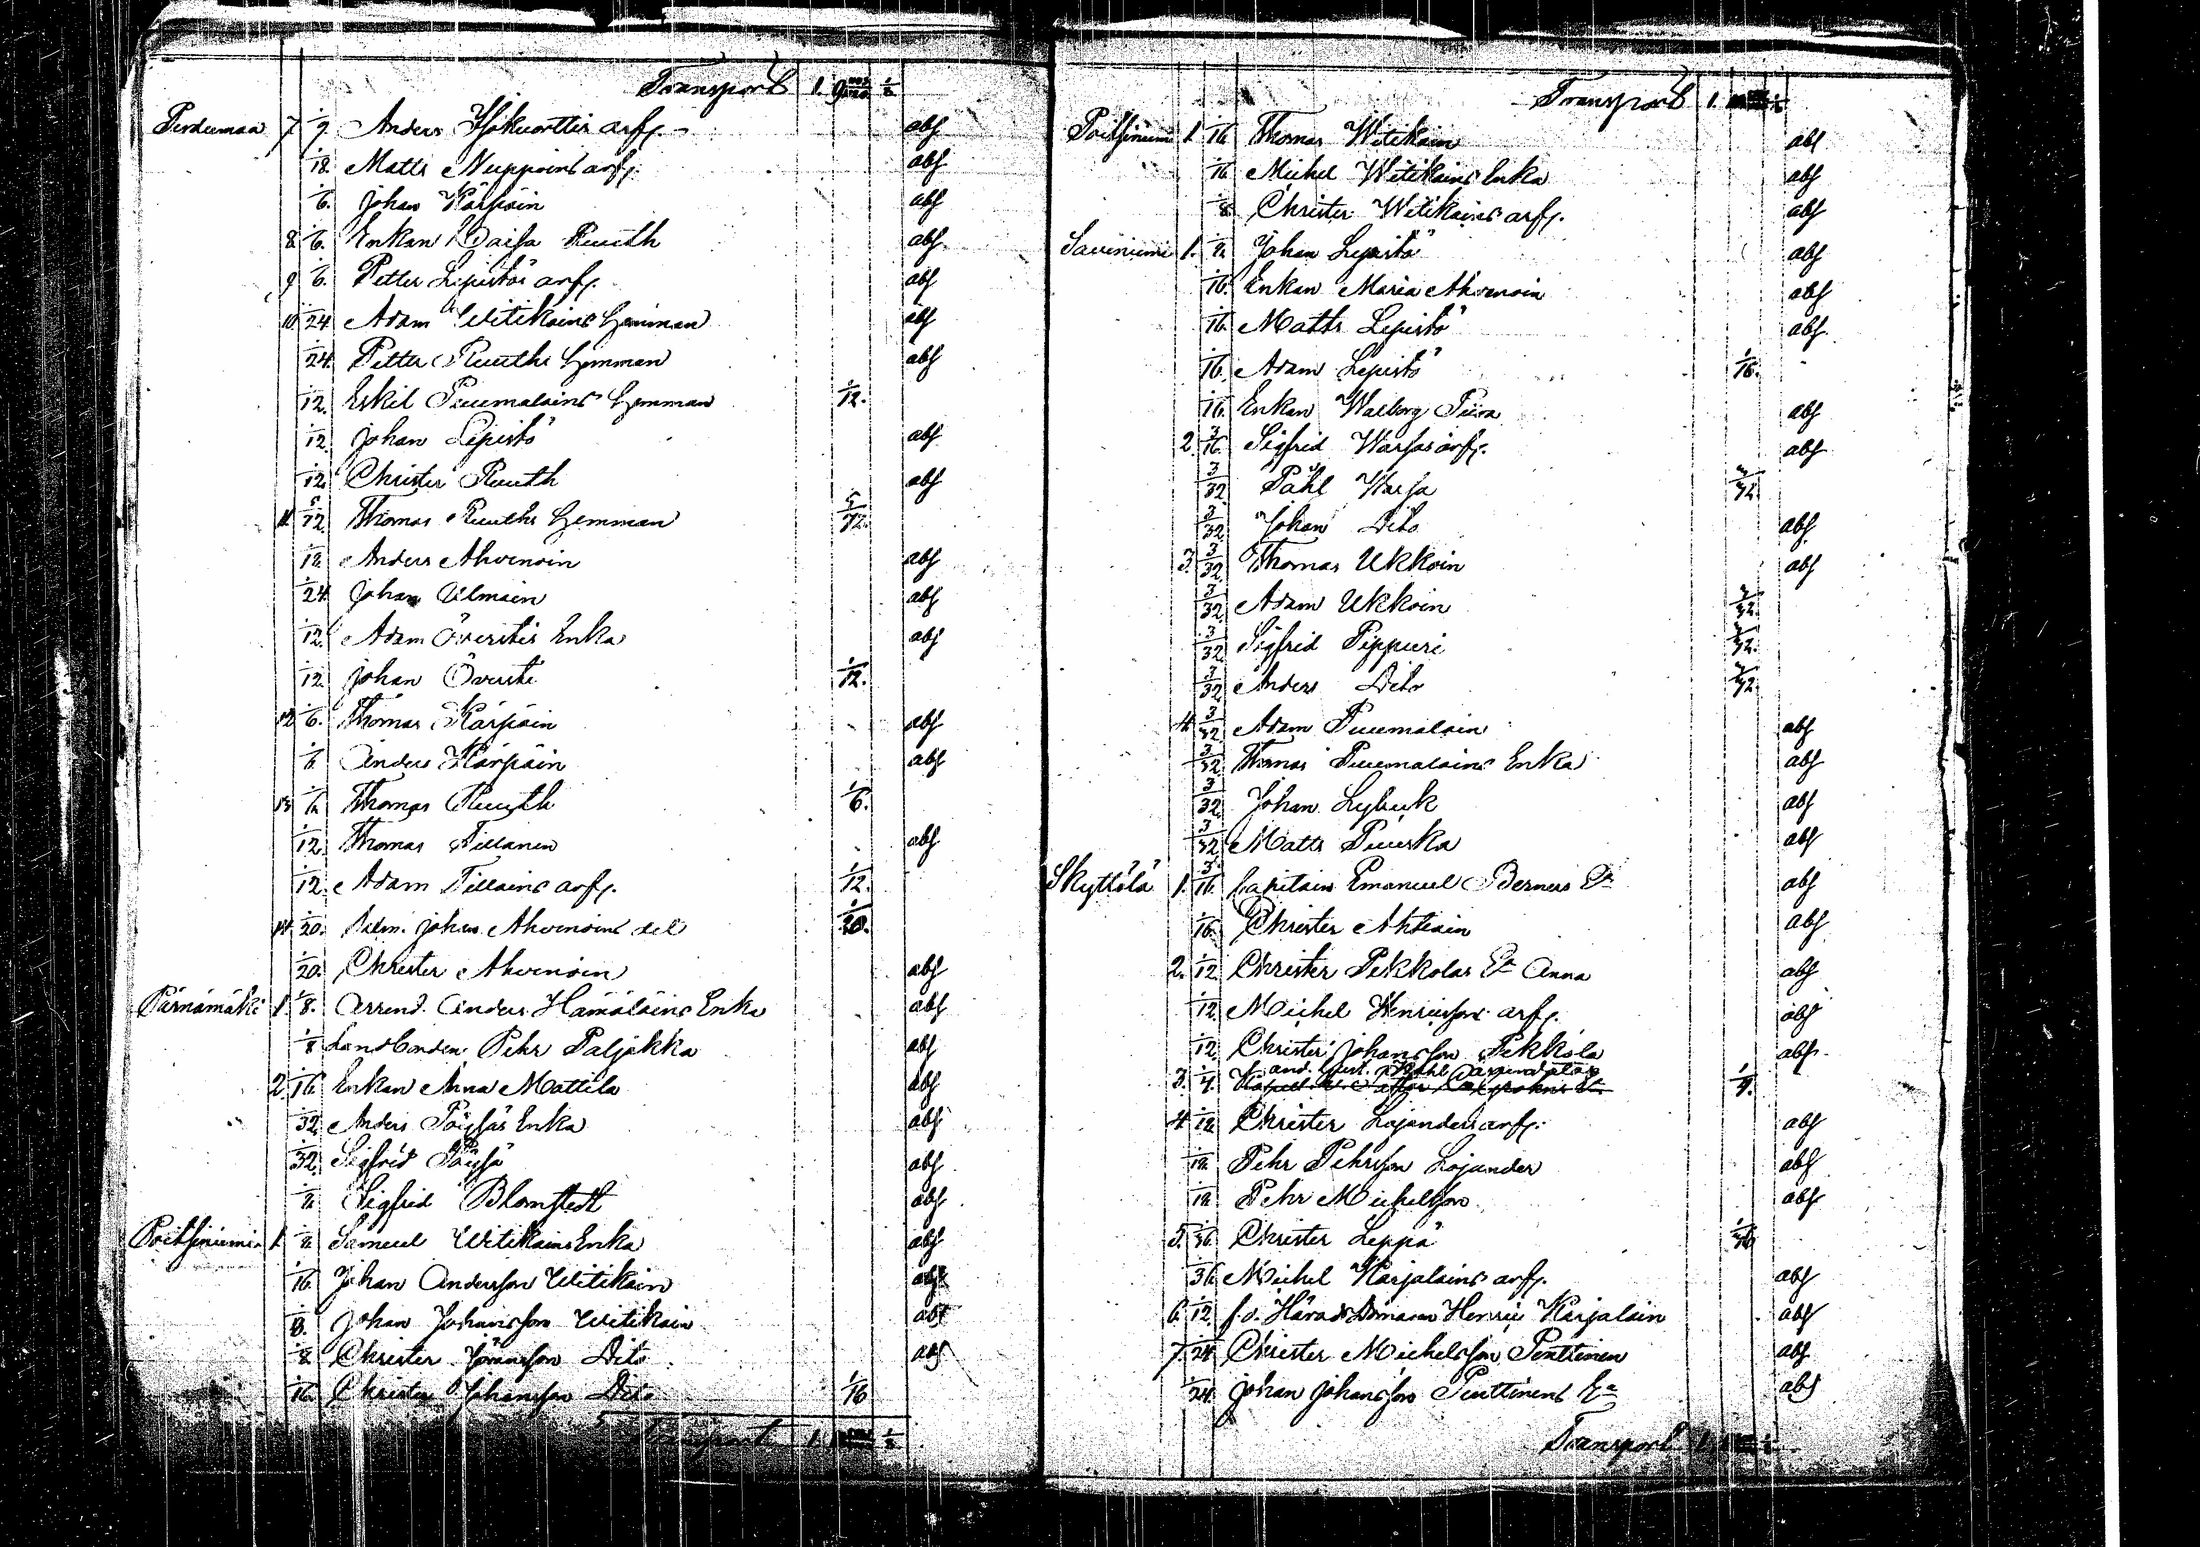 Transport 1.
Perdumaa 7 1/9 Anders Hjskuorttis arfr. abs
1/18. Matts Nuppoins arfr. abs
1/6. Johan Kärpäin abs
8 1/6. Enkan Caisa Ruuth abs.
9 1/6. Petter Lepistös arfr. abs
10 1/24 Adam Witikains Hemman abs
1/24. Petter Ruuths Hemman abs
1/12. Eskil Puumalains Hemman 1/12.
1/12. Johan Lepistö abs
1/12. Christer Ruuth abs
11 5/72. Thomas Ruuths Hemman 5/72.
1/12 Anders Ahvenoin abs
1/24 Johan Ulmain abs
1/12. Adam Överstis Enka abs
1/12. Johan Översti 1/12.
12 1/6. Thomas Kärpäin abs
1/6 Anders Kärpäin abs
13 1/6. Thomas Ruuth 1/6.
1/12. Thomas Tillanen abs
1/12. Adam Tillains arfr. 1/12.
14 1/20. Johan Ahvenoins del 1/20.
1/20. Christer Ahvenoin abs
Pärnämäki 1 1/8. Arrend. Anders Hämäläins Enka abs
1/8 Landbonden Pehr Paljakka abs
2 1/16 Enkan Anna Mattila abs
1/32. Anders Pöyhiäs Enka abs
1/32. Sigfrid Pöyhiä abs
Sigfrid Blomstedt abs
Poitsiniemi 1 Samuel Witikains Enka abs
1/16 Johan Andersson Witikain abs
1/8. Johan Johansson Witikain abs
1/8 Christer Jöransson Dito abs
1/16. Christer Johansson Dito 1/16
Transport 1.
Transport 1.
Poitsiniemi 1 1/16 Thomas Witikain abs
1/16 Michel Witikains Enka abs
1/8 Christer Witikains arfr. abs
Saviniemi 1. Johan Lepistö abs
1/16. Enkan Maria Ahvenoin abs
1/16. Matts Lepistö abs
1/16. Adam Lepistö 1/16.
1/16. Enkan Walborg Piira abs
2 3/16. Sigfrid Warsas arfr. abs
3/32 Påhl Warsa 3/32
3/32 Johan Dito abs
3. 3/32 Thomas Ukkoin abs
3/32 Adam Ukkoin 3/32.
3/32. Sigfrid Pippuri 3/32.
3/32 Anders Dito 3/32
4 3/32 Adam Puumalain abs
3/32 Thomas Puumalains Enka abs
3/32 Johan Lybeck abs
3/32 Matts Puuska abs
Skyttälä 1. 3/16 Capitain Emanuel Berners Ea abs
1/16. Christer Ahtiain abs
2. 1/12 Christer Pekkolas Ea Anna abs
1/12 Michel Henricsons arfr. abs
1/12 Christer Johansson Pekkola abs.
3. 1/4.
4 1/12 Christer Lojanders arfr. abs
1/12 Pehr Pehrsson Lojander abs
1/12 Pehr Michelsson abs
5. 1/36. Christer Leppä 1/36
1/36 Michel Karjalains arfr. abs
6 1/12 f.d. Häradsdomaren Henric Karjalain abs
7 1/24 Christer Michelsson Penttinen abs
1/24 Johan Johansson Penttinens Ea abs
Transport